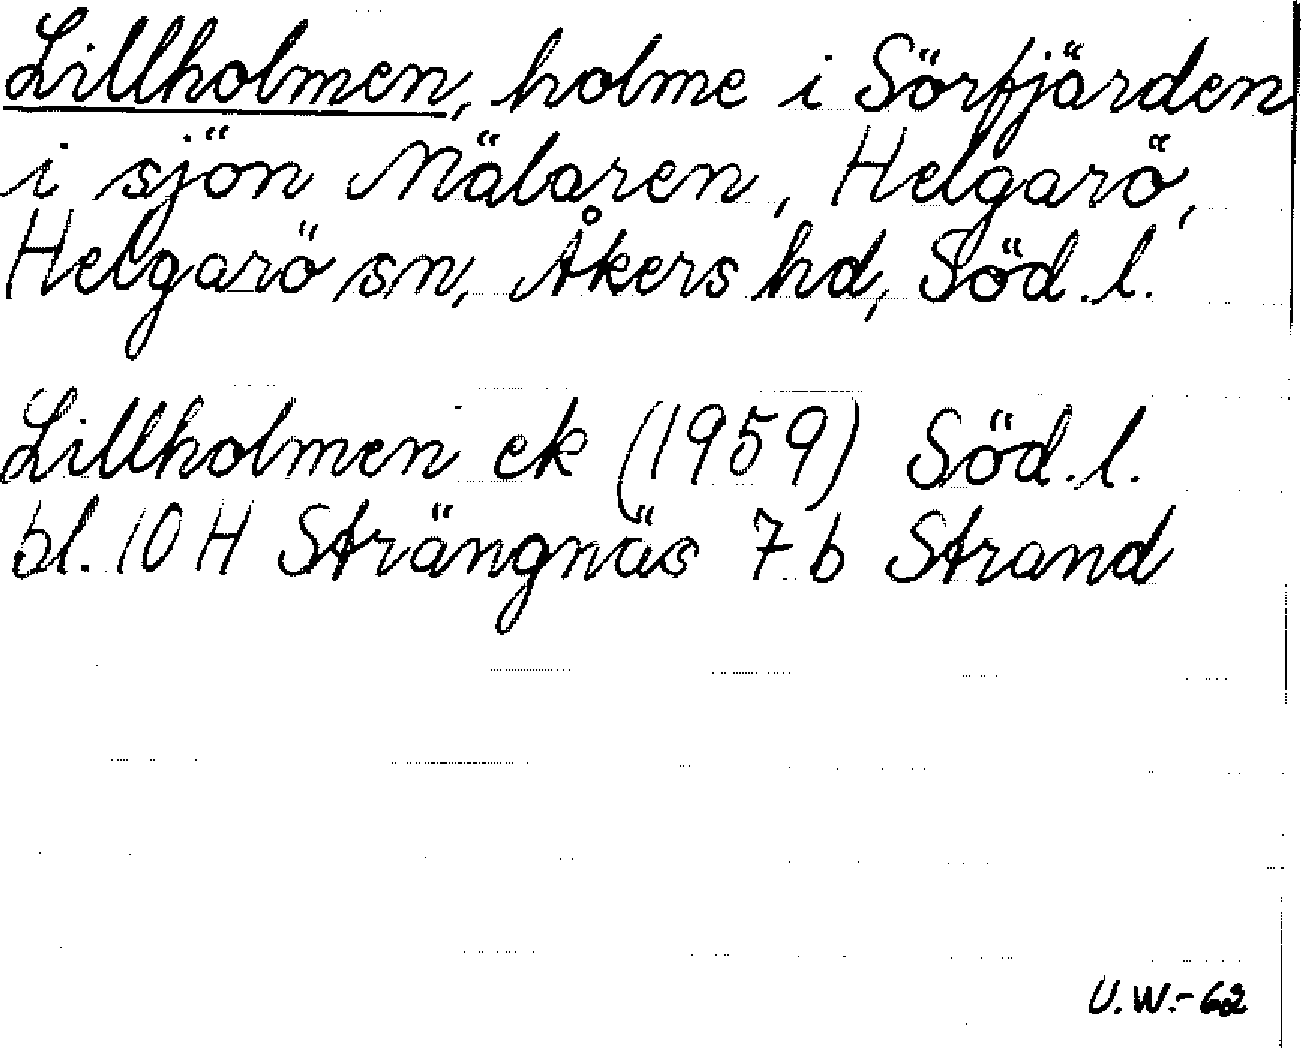 Lillholmen, holme i Sörfjärden
i sjön Mälaren, Helgarö,
Helgarö sn, Åkers hd, Söd.l.
Lillholmen ek (1959) Söd.l.
bl. 10 H Strängnäs 7 b Strand
U.W.-62